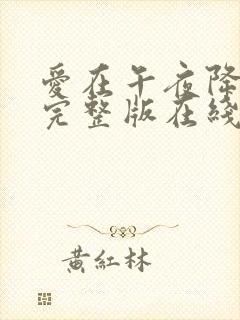 愛在午夜降
完整版在綫
黃紅林